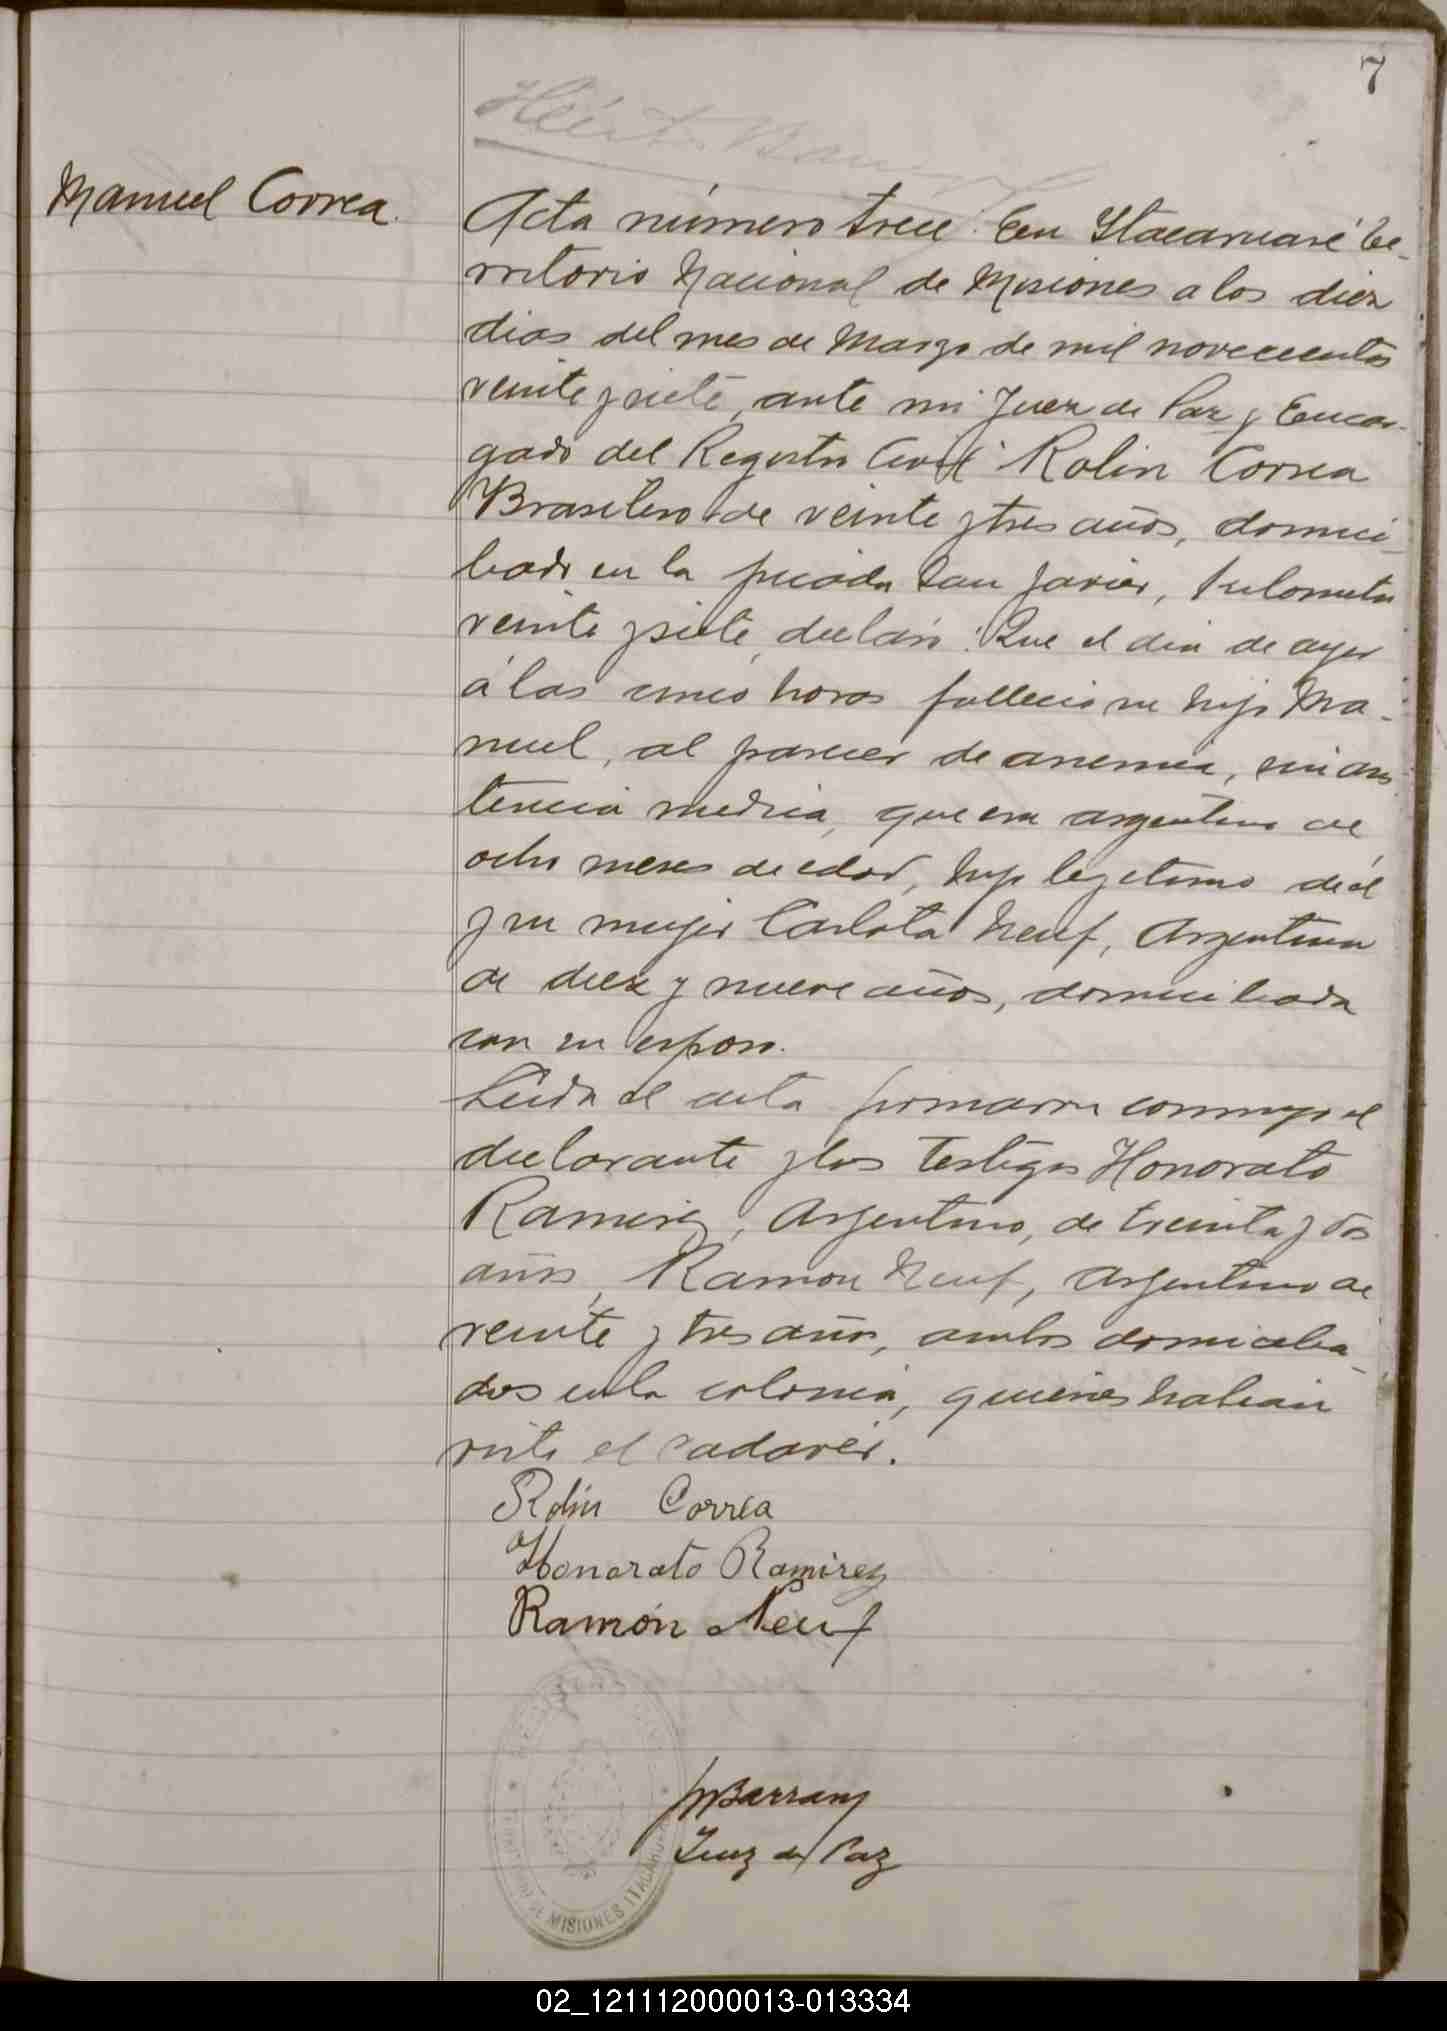 7
Manuel Correa.
Acta número trece. En Itacaruaré Te-
rritorio Nacional de Misiones a los diez
dias del mes de Marzo de mil novecientos
veinte y siete, ante mi Juez de Paz y Encar-
gado del Registro Civil Rolin Correa
Brasilero de veinte y tres años, domici-
liado en la picada San Javier, kilometro
veinte y siete, declaró: Que el dia de ayer
á las cinco horas falleció su hijo Ma-
nuel, al parecer de anemia, sin asis-
tencia medica, que era argentino de
ocho meses de edad, hijo legitimo de él
y su mujer Carlota Neuf, Argentina
de diez y nueve años, domiciliada
con su esposo.
Leida el acta firmaron conmigo el
declarante y los testigos Honorato
Ramirez, Argentino, de treinta y dos
años, Ramon Neuf, Argentino de
veinte y tres años, ambos domicilia-
dos en la colonia, quienes habian
visto el cadaver.
Rolin Correa
Honorato Ramirez
Ramón Neuf
Juez de Paz
DE MISIONES ITACARUARE
02_121112000013-013334